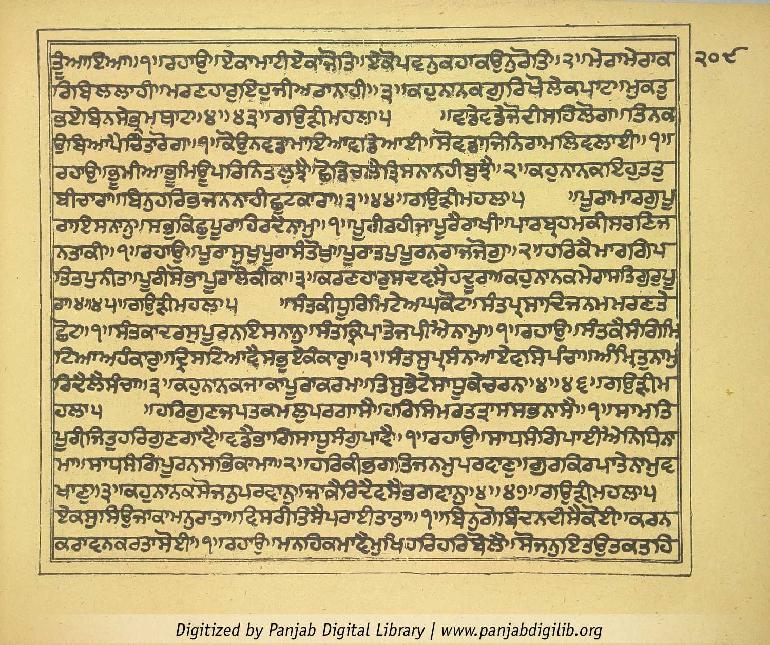 ਤੂੰਆਇਆ॥੧॥ਰਹਾਉ॥ਏਕਾਮਾਟੀਏਕਾਜੋਤਿ॥ਏਕੋਪਵਨੁਕਹਾਕਉਨੁਰੋਤਿ॥੨॥ਮੇਰਾਮੇਰਾਕ ੨੦੯
ਰਿਬਿਲਲਾਹੀ॥ਮਰਣਹਾਰੁਇਹੁਜੀਅਰਾਨਾਹੀ॥੩॥ਕਹੁਨਾਨਕਗੁਰਿਖੋਲੇਕਪਾਟ॥ਮੁਕਤੁ
ਭਏਬਿਨਸੇਭ੍ਰਮਥਾਟ॥੪॥੪੩॥ਗਉੜੀਮਹਲਾ੫ ॥ਵਡੇਵਡੇਜੋਦੀਸਹਿਲੋਗ॥ਤਿਨਕ
ਉਬਿਆਪੈਚਿੰਤਾਰੋਗ॥੧॥ਕੋਉਨਵਡਾਮਾਇਆਵਡਿਆਈ॥ਸੋਵਡਾਜਿਨਿਰਾਮਲਿਵਲਾਈ॥੧॥
ਰਹਾਉ॥ਭੂਮੀਆਭੂਮਿਊਪਰਿਨਿਤਲੁਝੈ॥ਛੋਡਿਚਲੈਤ੍ਰਿਸਨਾਨਹੀਬੁਝੈ॥੨॥ਕਹੁਨਾਨਕਇਹੁਤਤੁ
ਬੀਚਾਰਾ॥ਬਿਨੁਹਰਿਭਜਨਨਾਹੀਛੁਟਕਾਰਾ॥੩॥੪੪॥ਗਉੜੀਮਹਲਾ੫ ॥ਪੂਰਾਮਾਰਗੁਪੂ
ਰਾਇਸਨਾਨੁ॥ਸਭੁਕਿਛੁਪੂਰਾਹਿਰਦੈਨਾਮੁ॥੧॥ਪੂਰੀਰਹੀਜਾਪੂਰੈਰਾਖੀ॥ਪਾਰਬ੍ਰਹਮਕੀਸਰਣਿਜ
ਨਤਾਕੀ॥੧॥ਰਹਾਉ॥ਪੂਰਾਸੁਖੁਪੂਰਾਸੰਤੋਖੁ॥ਪੂਰਾਤਪੁਪੂਰਨਰਾਜਜੋਗੁ॥੨॥ਹਰਿਕੈਮਾਰਗਿਪ
ਤਿਤਪੁਨੀਤਾ॥ਪੂਰੀਸੋਭਾਪੂਰਾਲੋਕੀਕਾ॥੩॥ਕਰਣਹਾਰੁਸਦਵਸੈਹਦੂਰਾ॥ਕਹੁਨਾਨਕਮੇਰਾਸਤਿਗੁਰੁਪੂ
ਰਾ॥੪॥੪੫॥ਗਉੜੀਮਹਲਾ੫ ॥ਸੰਤਕੀਧੂਰਿਮਿਟੇਅਘਕੋਟ॥ਸੰਤਪ੍ਰਸਾਦਿਜਨਮਮਰਣਤੇ
ਛੋਟ॥੧॥ਸੰਤਕਾਦਰਸੁਪੂਰਨਇਸਨਾਨੁ॥ਸੰਤਕ੍ਰਿਪਾਤੇਜਪੀਐਨਾਮੁ॥੧॥ਰਹਾਉ॥ਸੰਤਕੈਸੰਗਿਮਿ
ਟਿਆਅਹੰਕਾਰੁ॥ਦ੍ਰਿਸਟਿਆਵੈਸਭੁਏਕੰਕਾਰੁ॥੨॥ਸੰਤਸੁਪ੍ਰਸੰਨਆਏਵਸਿਪੰਚਾ॥ਅੰਮ੍ਰਿਤੁਨਾਮੁ
ਰਿਦੈਲੈਸੰਚਾ॥੩॥ਕਹੁਨਾਨਕਜਾਕਾਪੂਰਾਕਰਮ॥ਤਿਸੁਭੇਟੇਸਾਧੂਕੇਚਰਨ॥੪॥੪੬॥ਗਉੜੀਮ
ਹਲਾ੫ ॥ਹਰਿਗੁਣਜਪਤਕਮਲੁਪਰਗਾਸੈ॥ਹਰਿਸਿਮਰਤਤ੍ਰਾਸਸਭਨਾਸੈ॥੧॥ਸਾਮਤਿ
ਪੂਰੀਜਿਤੁਹਰਿਗੁਣਗਾਵੈ॥ਵਡੈਭਾਗਿਸਾਧੂਸੰਗੁਪਾਵੈ॥੧॥ਰਹਾਉ॥ਸਾਧਸੰਗਿਪਾਈਐਨਿਧਿਨਾ
ਮਾ॥ਸਾਧਸੰਗਿਪੂਰਨਸਭਿਕਾਮਾ॥੨॥ਹਰਿਕੀਭਗਤਿਜਨਮੁਪਰਵਾਣੁ॥ਗੁਰਕਿਰਪਾਤੇਨਾਮੁਵ
ਖਾਣੁ॥੩॥ਕਹੁਨਾਨਕਸੋਜਨੁਪਰਵਾਨੁ॥ਜਾਕੈਰਿਦੈਵਸੈਭਗਵਾਨੁ॥੪॥੪੭॥ਗਉੜੀਮਹਲਾ੫
ਏਕਸੁਸਿਉਜਾਕਾਮਨੁਰਾਤਾ॥ਵਿਸਰੀਤਿਸੈਪਰਾਈਤਾਤਾ॥੧॥ਬਿਨੁਗੋਬਿੰਦਨਦੀਸੈਕੋਈ॥ਕਰਨ
ਕਰਾਵਨਕਰਤਾਸੋਈ॥੧॥ਰਹਾਉ॥ਮਨਹਿਕਮਾਵੈਮੁਖਿਹਰਿਹਰਿਬੋਲੈ॥ਸੋਜਨੁਇਤਉਤਕਤਹਿ
Digitized by Panjab Digital Library | www.panjabdigilib.org